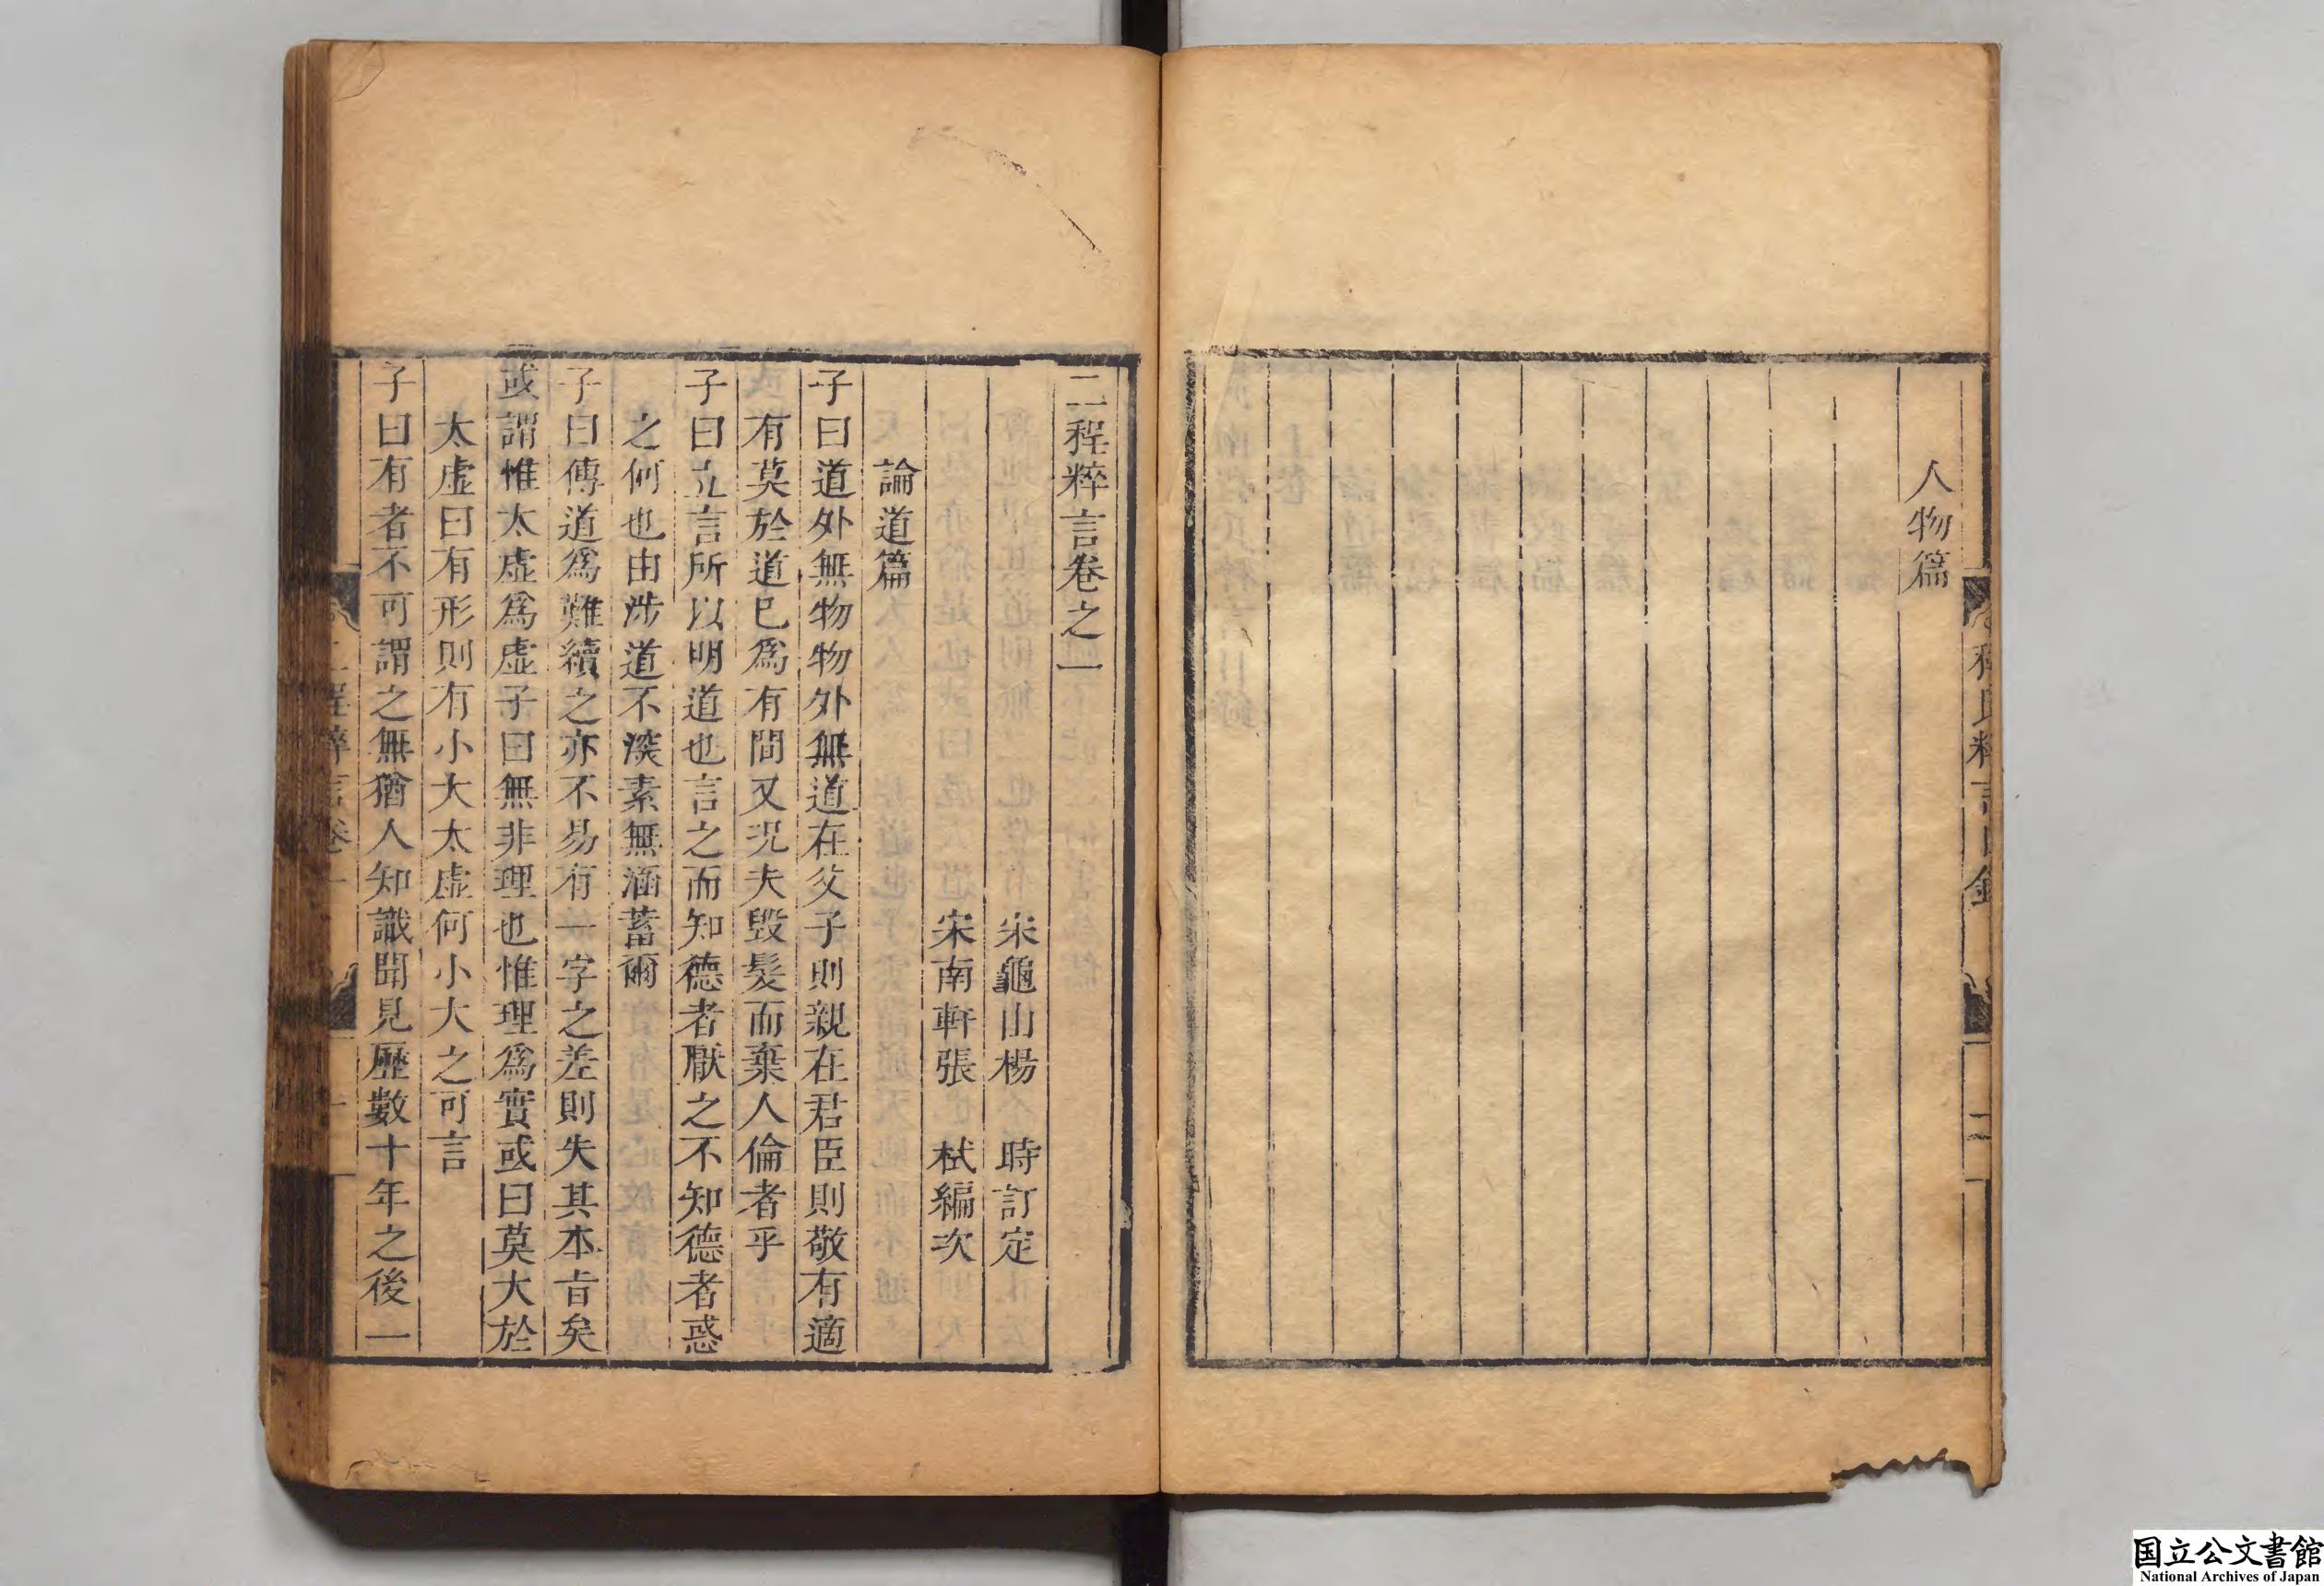 人物篇
二程粹言卷之一
宋龜山楊 時訂定
宋南軒張 栻編次
論道篇
子曰道外無物物外無道在父子則親在君臣則敬有適
有莫於道已爲有間又况夫毀髮而棄人倫者乎
子曰立言所以明道也言之而知德者厭之不知德者惑
之何也由涉道不深素無涵蓄爾
子曰傳道爲難續之亦不易有一字之差則失其本旨矣
或謂惟太虛爲虛子曰無非理也惟理爲實或曰莫大於
太虛曰有形則有小大太虛何小大之可言
子曰有者不可謂之無猶人知識聞見歷數十年之後一
二程粹言卷一
一
国立公文書館
National Archives of Japan